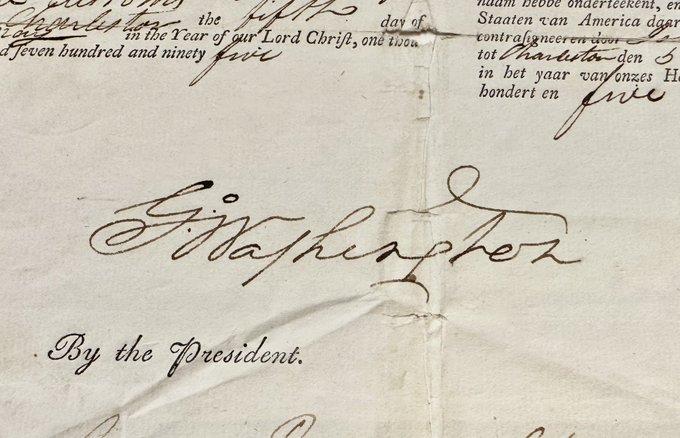 the fifth day of
Charleston in the Year of our Lord Christ, one thou
d ſeven hundred and ninety five
naam hebbe onderteekent, en
Staaten van America daar
contraſigneeren door
tot Charleston den 5
in het yaar van onzes He
hondert en five
G:Washington
By the President.